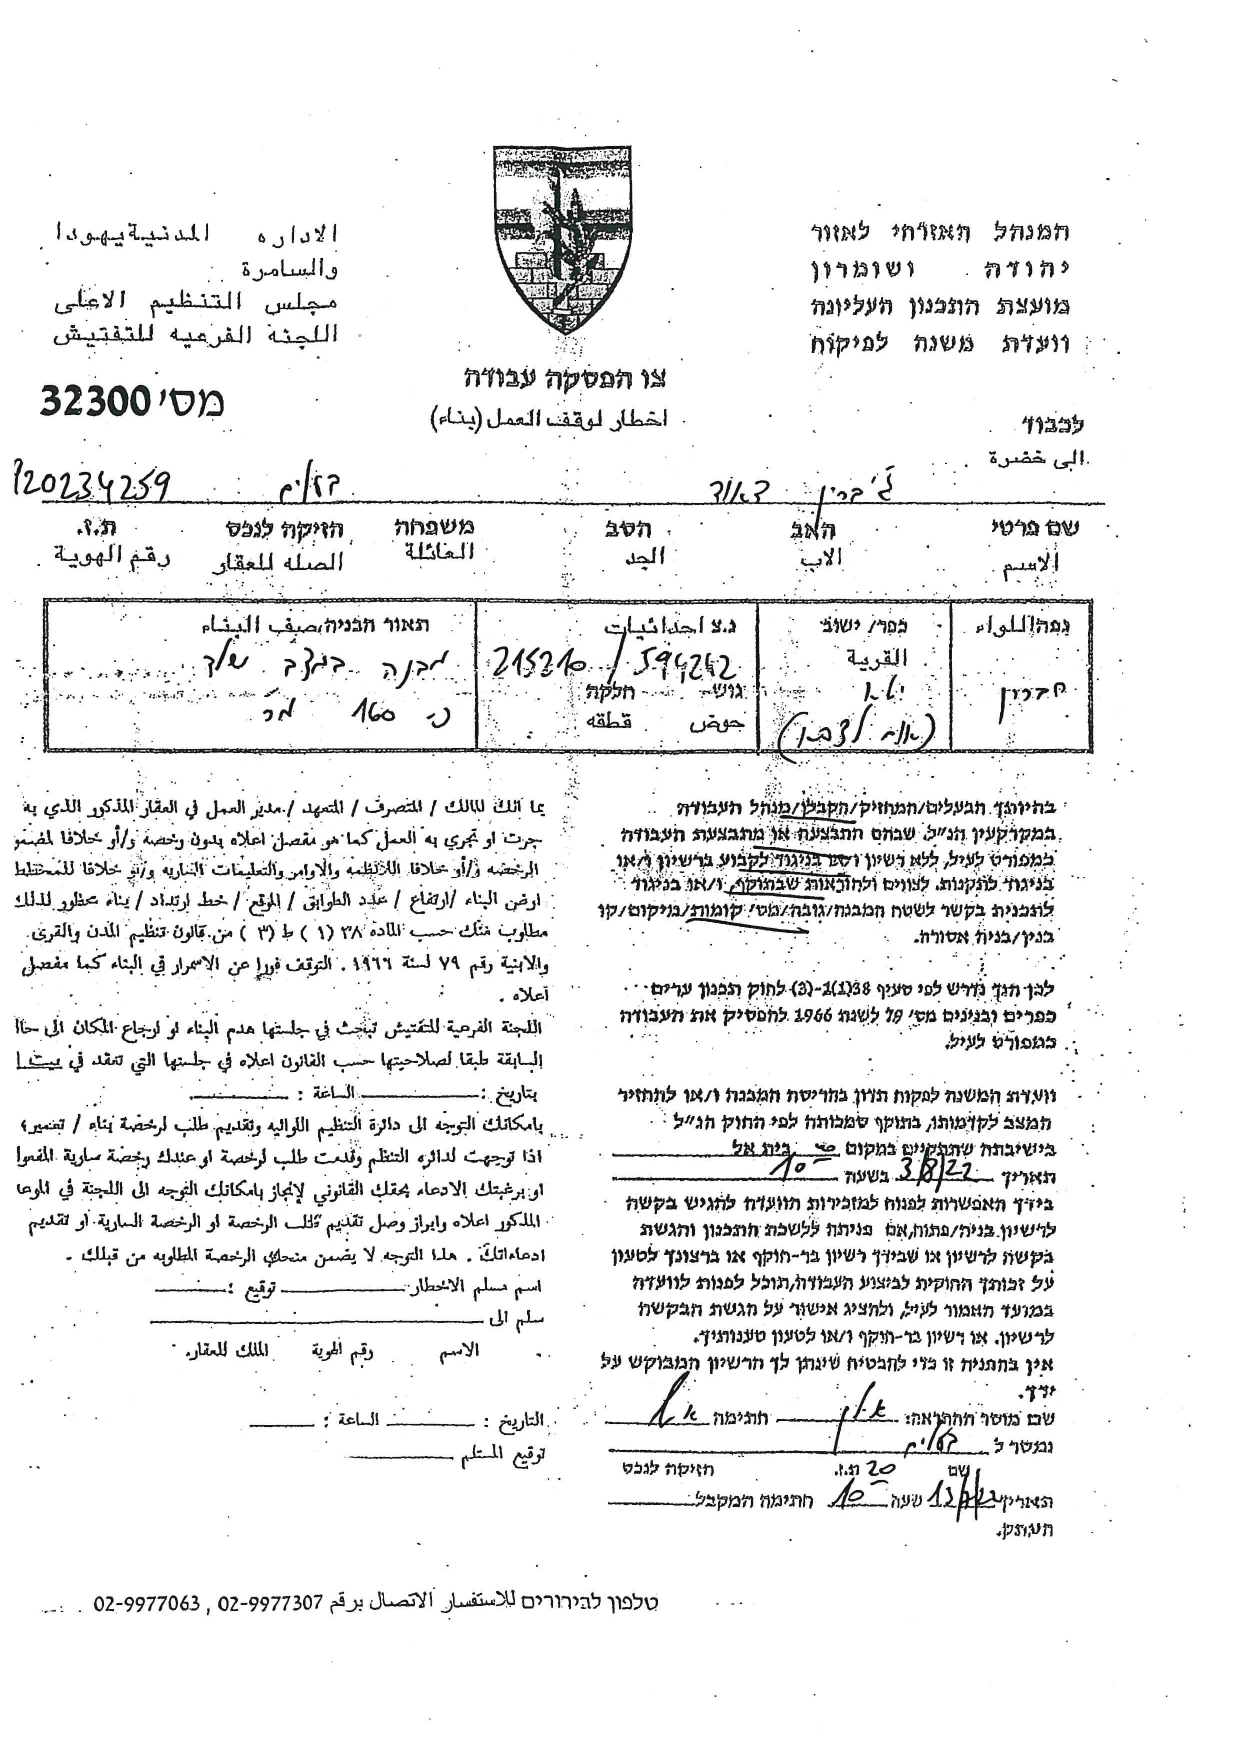 המנהל האזרחי לאזור
יהודה ושומרון
מועצת התכנון העליונה
וועדת משנה לפיקוח
الاداره المدنية يهودا
والسامرة
مجلس التنظيم الاعلى
اللجنة الفرعيه للتفتيش
צו הפסקה עבודה
اخطار لوقف العمل (بناء)
מסי 32300
לכבוד
الى خضرة
ג'ברין דאוד 920234259
שם פרטי האב הסב משפחה הזיקה לנכס ת.ז.
الاسم الاب الجد العائلة الصله للعقار رقم الهوية
נפה/اللواء כפר/ ישוב נ.צ احداثيات תאור הבניה/صيف البناء
القرية
חברון יטא 594242 / 215210 מבנה
גוש חלקה
حوض قطقه
כ- 160 מר
בהיותך הבעלים/המחזיק/הקבלן/מנהל העבודה
במקרקעין הנ"ל, שבהם התבצעה או מתבצעת העבודה
כמפורט לעיל, ללא רשיון ו/או בניגוד לקבוע ברשיון ו/או
בניגוד לתקנות, לצווים ולהוראות שבתוקף, ו/או בניגוד
לתכנית בקשר לשטח המבנה/גובה/מס' קומות/מיקום/קו
בנין/בניה אסורה.
לכן הנך נדרש לפי סעיף 38(1)ו-(3) לחוק תכנון ערים
כפרים ובנינים מס' 79 לשנת 1966 להפסיק את העבודה
כמפורט לעיל.
וועדת המשנה לפקוח תדון בהריסת המבנה ו/או להחזיר
המצב לקדמותו, בתוקף סמכותה לפי החוק הנ"ל
בישיבתה שתתקיים במקום בית אל
תאריך 3/8/22 בשעה 10
בידך האפשרות לפנות למזכירות הוועדה להגיש בקשה
לרשיון בניה/פתוח,אם פניתה ללשכת התכנון והגשת
בקשה לרשיון או שבידך רשיון בר-תוקף או ברצונך לטעון
על זכותך החוקית לביצוע העבודה,תוכל לפנות לוועדה
במועד האמור לעיל, ולהציג אישור על הגשת הבקשה
לרשיון, או רשיון בר-תוקף ו/או לטעון טענותיך.
אין בהתניה זו כדי להבטיח שינתן לך הרשיון המבוקש על
ידך.
שם מוסר ההתראה: אילן חתימה
נמסר ל
שם ת.ז. חזיקה לנכס
תאריך שעה 10 חתימה המקבל
העתק.
بما انك المالك / المتصرف / المتعهد / مدير العمل في العقار المذكور الذي به
جرت او تجري به العمل كما هو مفصل اعلاه بدون رخصة و/أو خلافا لمضمو
الرخصه و/أو خلافا للانظمه والاوامر والتعليمات الساريه و/أو خلافا للمخطط
ارض البناء /ارتفاع / عدد الطوابق / الموقع / خط ارتداد / بناء محظور لذلك
مطلوب منك حسب الماده ٣٨ (١ ) ط (٣ ) من قانون تنظيم المدن والقرى
والابنية رقم ٧٩ لسنة ١٩٦٦ . التوقف فورا عن الاسمرار في البناء كما مفصل
اعلاه .
اللجنة الفرعية للتفتيش تبحث في جلستها هدم البناء او لرجاع المكان الى حالا
السابقة طبقا لصلاحيتها حسب القانون اعلاه في جلستها التي تنعقد في بيت ا
بتاريخ : الساعة :
بامكانك التوجه الى دائرة التنظيم اللوائيه وتقديم طلب لرخصة بناء /
اذا توجهت لدائره التنظم وقدمت طلب لرخصة او عندك رخصة سارية المفعوا
او برغبتك الادعاء بحقك القانوني لإنجاز بامكانك التوجه الى اللجنة في الموعا
المذكور اعلاه وابراز وصل تقديم طلب الرخصة او الرخصة السارية او تقديم
ادعاءاتك . هذا التوجه لا يضمن منحك الرخصة المطلوبه من قبلك .
اسم مسلم الاخطار توقيع :
سلم الى
الاسم رقم الهوية الملك للعقار.
التاريخ : الساعة :
توقيع المستلم
טלפון לבירורים للاستفسار الاتصال برقم 02-9977307 , 02-9977063